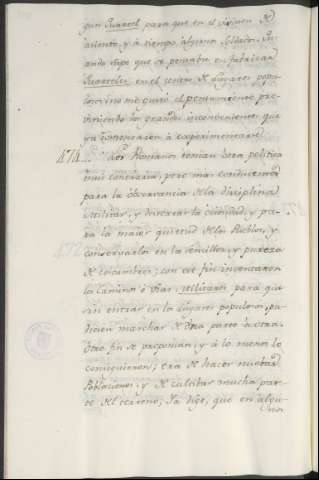 gun Quartel para que en el viniesen de
asiento, y à tiempo alguno soldados. Qu
ando supe que se pensaba en fabricar
Quarteles en el centro de Lugares popu
losos, no me gustó el pensamiento, pre
viniendo los grandes inconvenientes que
ya comenzaron à experimentarse.
474... Los Romanos tenian otra politica
mui contraria; pero mas conducente
para la observancia de la disciplina
Militar, y desterrar la ociosidad, y pa
ra la maior quietud de los Pueblos, y
conservarlos en la sencillez, y pureza
de costumbres; con este fin inventaron
los caminos ó Vias militares para que
sin entrar en los Lugares populosos, pu
diesen marchar de una parte à otra.
Otro fin se proponian, y à lo menos lo
consiguieron; era de hacer nuebas
Poblaciones, y de cultibar mucha par
te del terreno; Ya dije, que en algu
nos